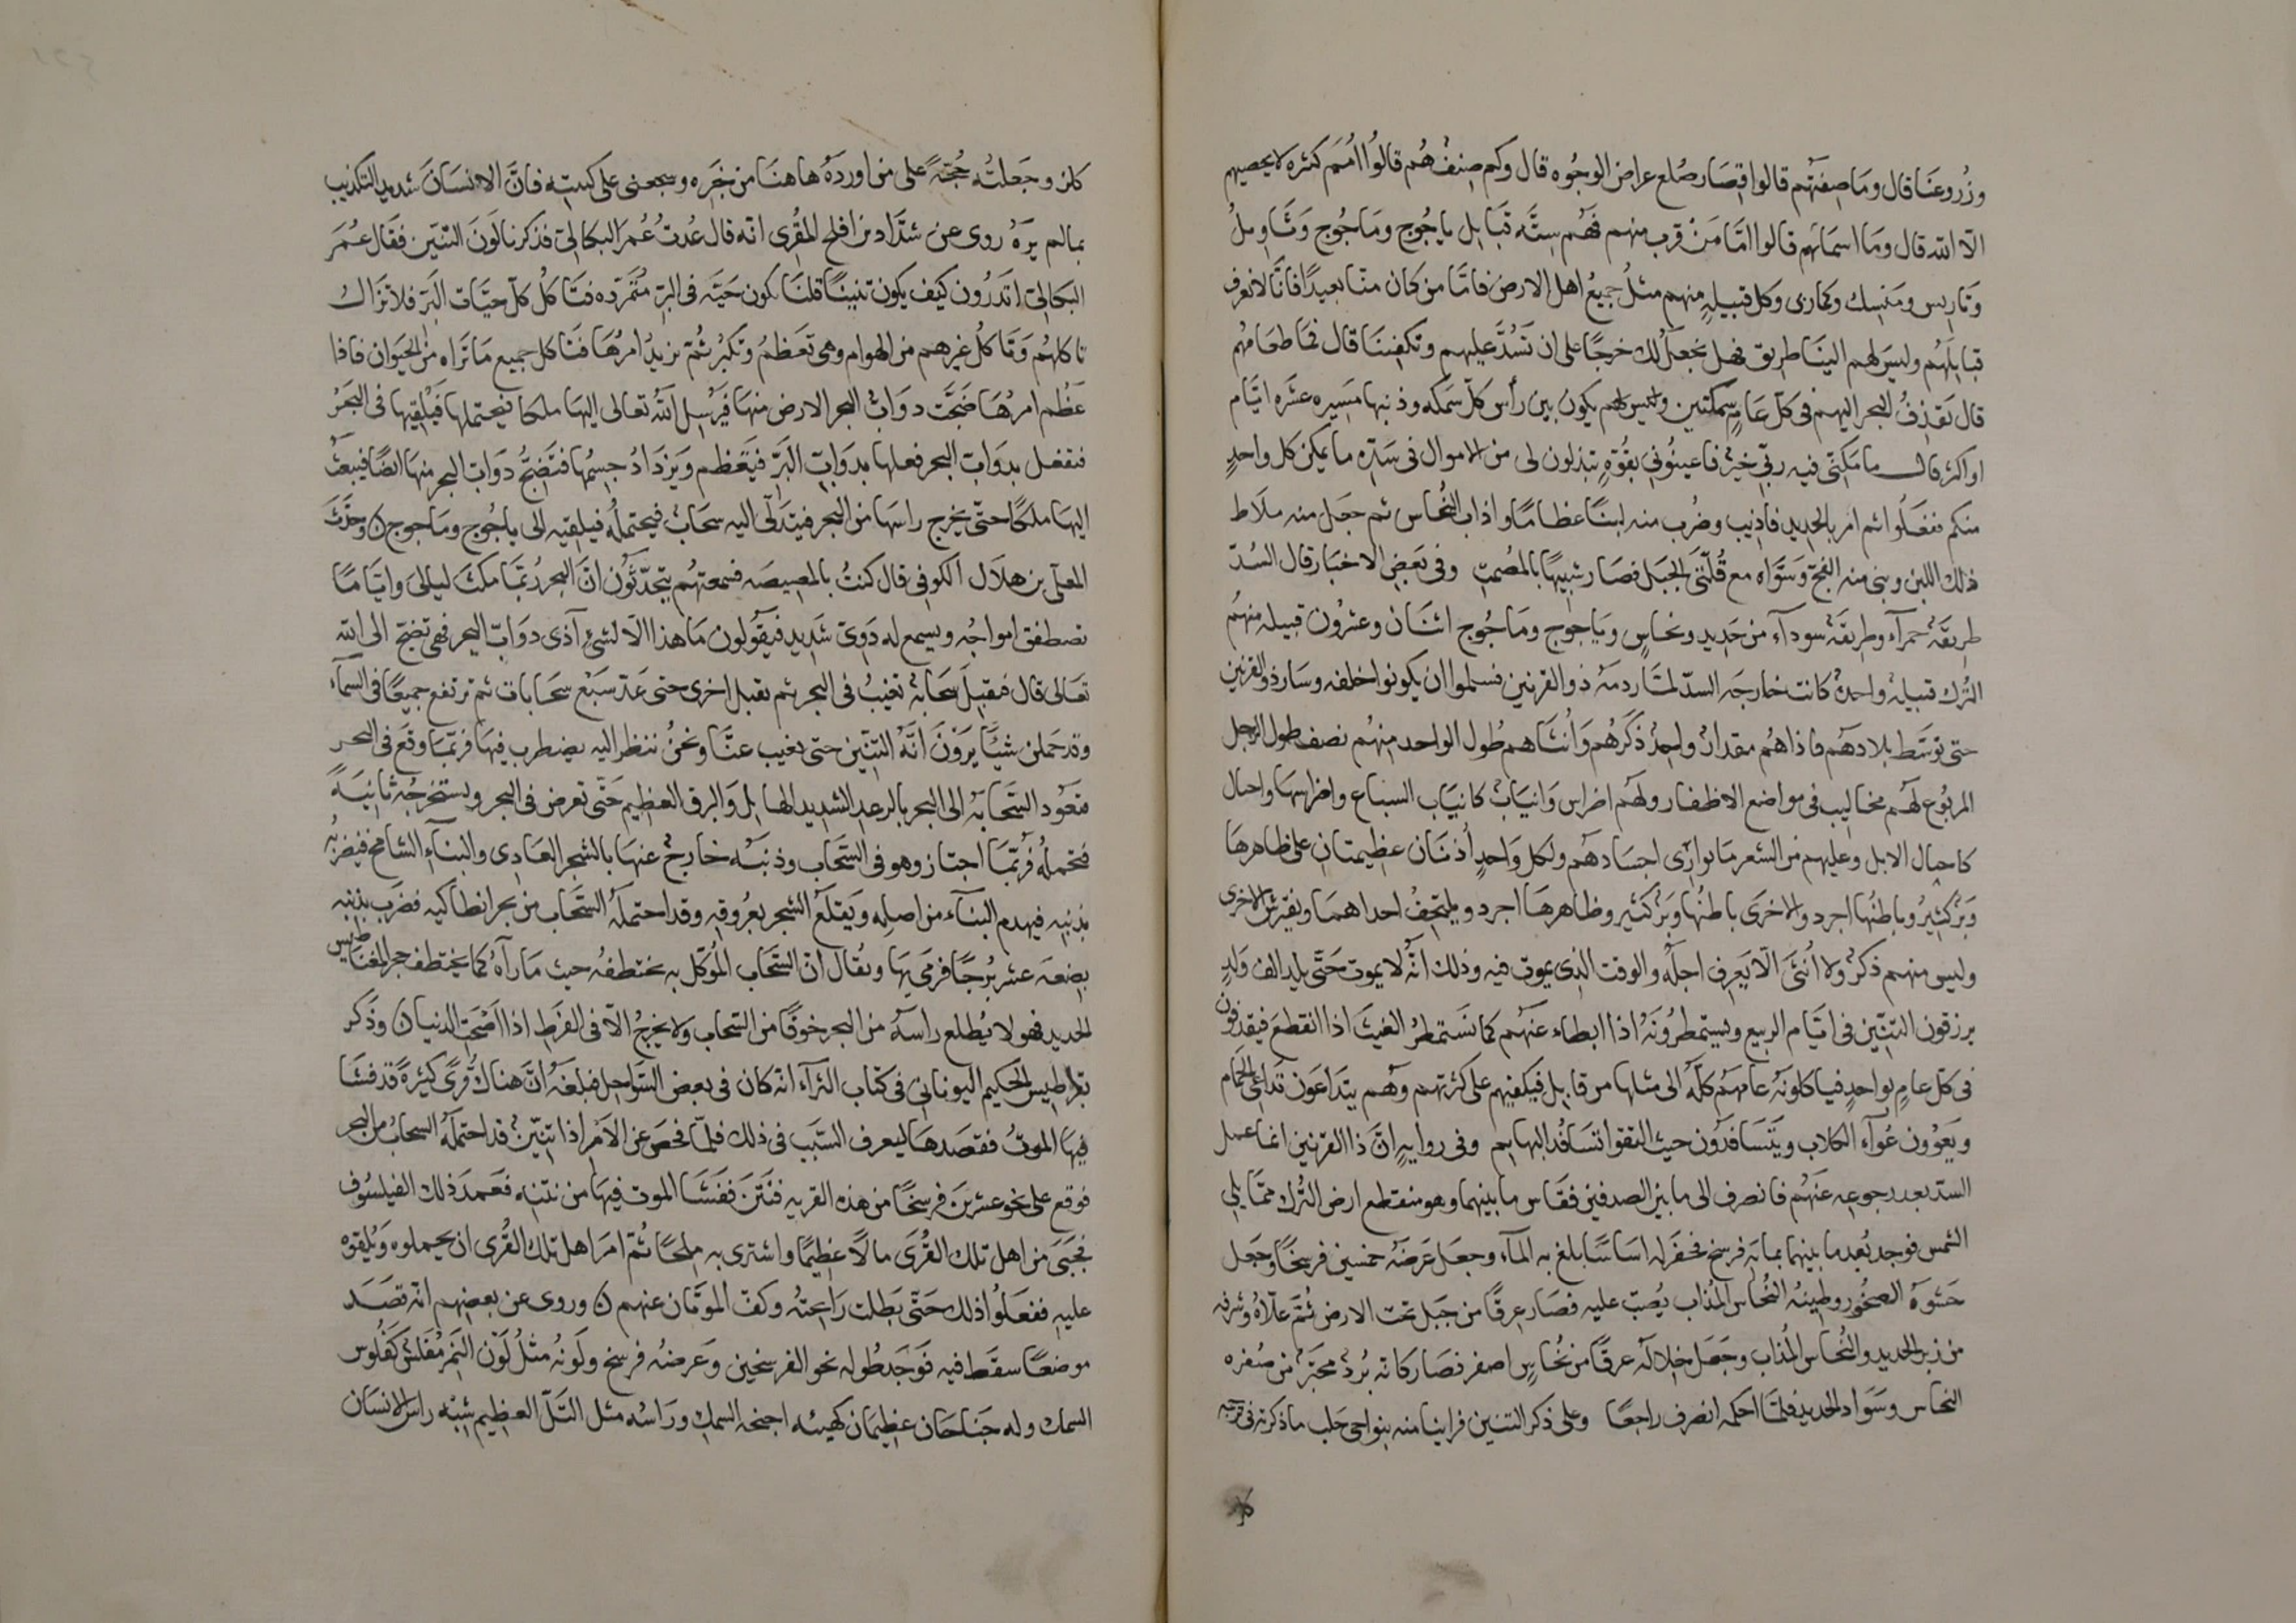 وزروعنا قال وما صفتهم قالوا قصار صلع عراض الوجوه قال وكم صنف هم قالوا امم كثيره لا يحصيهم
الا الله قال وما اسماهم قالوا امّا من قرب منهم فهم ستّه قبايل ياجوج وماجوج وتاويل
وتاريس ومنسك وكمارى وكل قبيلةٍ منهم مثل جميع اهل الارض فامّا من كان منّا بعيدًا فانّا لا نعرف
قبايلهم وليس لهم الينا طريق فهل نجعل لك خرجًا على ان تسدّ عليهم وتكفيننا قال فما طعامهم
قال يقذف البحر اليهم فى كلّ عامٍ سمكتين وليس لهم يكون بين رأس كلّ سمكه وذنبها مسيره عشره ايّام
او اكثر قال ما مكنّى فيه ربّى خيرٌ فاعينونى بقوّةٍ تبذلون لى من الاموال فى سدّه ما يمكن كل واحدٍ
منكم ففعلوا ثم امر بالحديد فاذيب وضُرب منه لبنًا عظامًا واذاب النُحاس ثم جعل منه ملاط
ذلك اللبن وبنى منه الفجّ وسوّاه مع قُلّتى الجبل فصار شبيهًا بالمصمت وفى بعض الاخبار قال السُدّ
طريقةٌ حمرآء وطريقةٌ سودآء من حديد ونحاسٍ وياجوج وماجوج اثنان وعشرون قبيله منهم
الترك قبيلةٌ واحدةٌ كانت خارجه السدّ لمّا ردمهُ ذو القرنين فسلموا ان يكونوا خلفه وسار ذو القرنين
حتى توسّط بلادهم فاذاهُم مقدارٌ واحدٌ ذكرهم وأنثاهم طول الواحد منهم نصف طول الرجل
المربوع لهم مخاليب فى مواضع الاظفار ولهم اضراس وانيابٌ كانياب السباع واضراسها واحناك
كاحناك الابل وعليهم من الشعر ما يوارى اجسادهم ولكل واحدٍ أذنان عظيمتان على ظاهرها
وبرٌ كثيرٌ وباطنها اجرد والاخرى باطنها وبرٌ كثير وظاهرها اجرد ويلتحف احداهما ويفترش الاخرى
وليس منهم ذكرٌ ولا أنثى الّا يعرف اجله والوقت الذى يموت فيه وذلك انّه لا يموت حتّى يلد الف ولدٍ
يرزقون التنّين فى ايّام الربيع ويستمطرونه اذا ابطاء عنهم كما نستمطر الغيث اذا انقطع فيقذفون
فى كل عامٍ بواحدٍ فياكلونه عامهم كلّه الى مثلها من قابل فيكفيهم على كثرتهم وهم يتداعون تداعى الحمام
ويعوون عوآء الكلاب ويتسافدون حيث التقوا تسافد البهايم وفى روايةٍ انّ ذا القرنين انما عمل
السدّ بعد رجوعه عنهم فانصرف الى ما بين الصدفين فقاس ما بينهما وهو منقطع ارض الترك ممّا يلى
الشمس فوجد بُعد ما بينهما مايه فرسخ فحفر له اساسًا بلغ به المآء وجعل عرضه خمسين فرسخًا وجعل
حشوه الصخور وطينه النُحاس المذاب يُصبّ عليه فصار عرقًا من جبل تحت الارض ثمّ علّاه وشرفه
من زبر الحديد والنُحاس المذاب وجعل خلاله عرقًا من نُحاسٍ اصفر فصار كانّه بُردٌ محبّرٌ من صفره
النحاس وسواد الحديد فلمّا احكمه انصرف راجعًا وعلى ذكر التنين فراينا منه بنواحى حلب ما ذكرته فى ترجمه
كلز
كلز وجعلته حجّةً على من اورده هاهنا من خبره وشجعنى على كسته فانّ الانسان شديد التكذيب
بما لم يره روى عن شدّاد بن افلح المقرى انه قال عُدتُ عُمر البكالىّ فذكرنا لون التنّين فقال عُمر
البكالىّ اتدرون كيف يكون تنينًا قلنا لا قال يكون حيّه فى البرّ متمرّده فتاكل كلّ حيّات البرّ فلا تزال
تاكلهم وتاكل غيرهم من الهوام وهى تعظم وتكبر ثمّ يزيد امرها فتاكل جميع ما تراه من الحيوان فاذا
عظم امرها ضجّت دوابّ البحر الارض منها فيرسل الله تعالى اليها ملكا فيحتملها فيلقيها فى البحر
فتفعل بدوابّ البحر فعلها بدوابّ البرّ فيعظم ويزداد جسمها فتضجّ دوابّ البحر منها ايضًا فيبعث
اليها ملكًا حتّى يخرج راسها من البحر فيتدلّى اليه سحابٌ فيحتمله فيلقيه الى ياجوج وماجوج وحدّث
المعلّى بن هلال الكوفى قال كنتُ بالمصيصه فسمعتهم يتحدّثون انّ البحر ربّما مكث ليالى وايّامًا
تصطفق امواجه ويسمع له دوىّ شديد فيقولون ما هذا الّا لشئٍ آذى دوابّ البحر فهى تضجّ الى الله
تعالى قال فتقبل سحابةٌ تغيب فى البحر ثم تقبل اخرى حتى عدّ سبع سحابات ثمّ ترتفع جميعًا فى السمآء
وقد حملن شيئًا يرون انّه التنّين حتى يغيب عنّا ونحن ننظر اليه يضطرب فيها فربّما وقع فى البحر
فتعود السحابه الى البحر بالرعد الشديد الهايل والبرق العظيم حتّى تعرض فى البحر ويستخرجه ثانيةً
فتحمله فربّما اجتاز وهو فى السحاب وذنبه خارجٌ عنها بالشجر العادى والبنآء الشامخ فيضربه
بذنبه فيهدم البنآء من اصله ويقلع الشجر بعروقه وقد احتمله السحاب من بحر انطاكيه فضرب بذنبه
بضعه عشر برجًا فرمى بها ويقال انّ السحاب الموكّل به يختطفه حيث ما رآه كما يختطف حجر المغناطيس
الحديد فهو لا يُطلع راسه من البحر خوفًا من السحاب ولا يخرج الّا فى الفرط اذا اصحت الدنيا وذكر
بقراطيس الحكيم اليونانى فى كتاب الثرآء انه كان فى بعض السواحل فبلغه انّ هناك قُرًى كثيرةً قد فشا
فيها الموتُ فقصدها ليعرف السبب فى ذلك فلمّا فحص عن الامر اذا تنّينٌ قد احتمله السحاب من البحر
فوقع على نحو عشرين فرسخًا من هذه القريه فنتن ففشا الموت فيها من نتنه فعمد ذلك الفيلسوف
فجبى من اهل تلك القُرى مالًا عظيمًا واشترى به ملحًا ثمّ امر اهل تلك القُرى ان يحملوه ويلقوه
عليه ففعلوا ذلك حتّى بطلت رايحته وكفّ الموتان عنهم وروى عن بعضهم انّه قصد
موضعًا سقط فيه فوجد طوله نحو الفرسخين وعرضه فرسخ ولونه مثل لون النمر مفلّس كفلوس
السمك وله جناحان عظيمان كهيئه اجنحه السمك وراسه مثل التلّ العظيم شبه راس الانسان